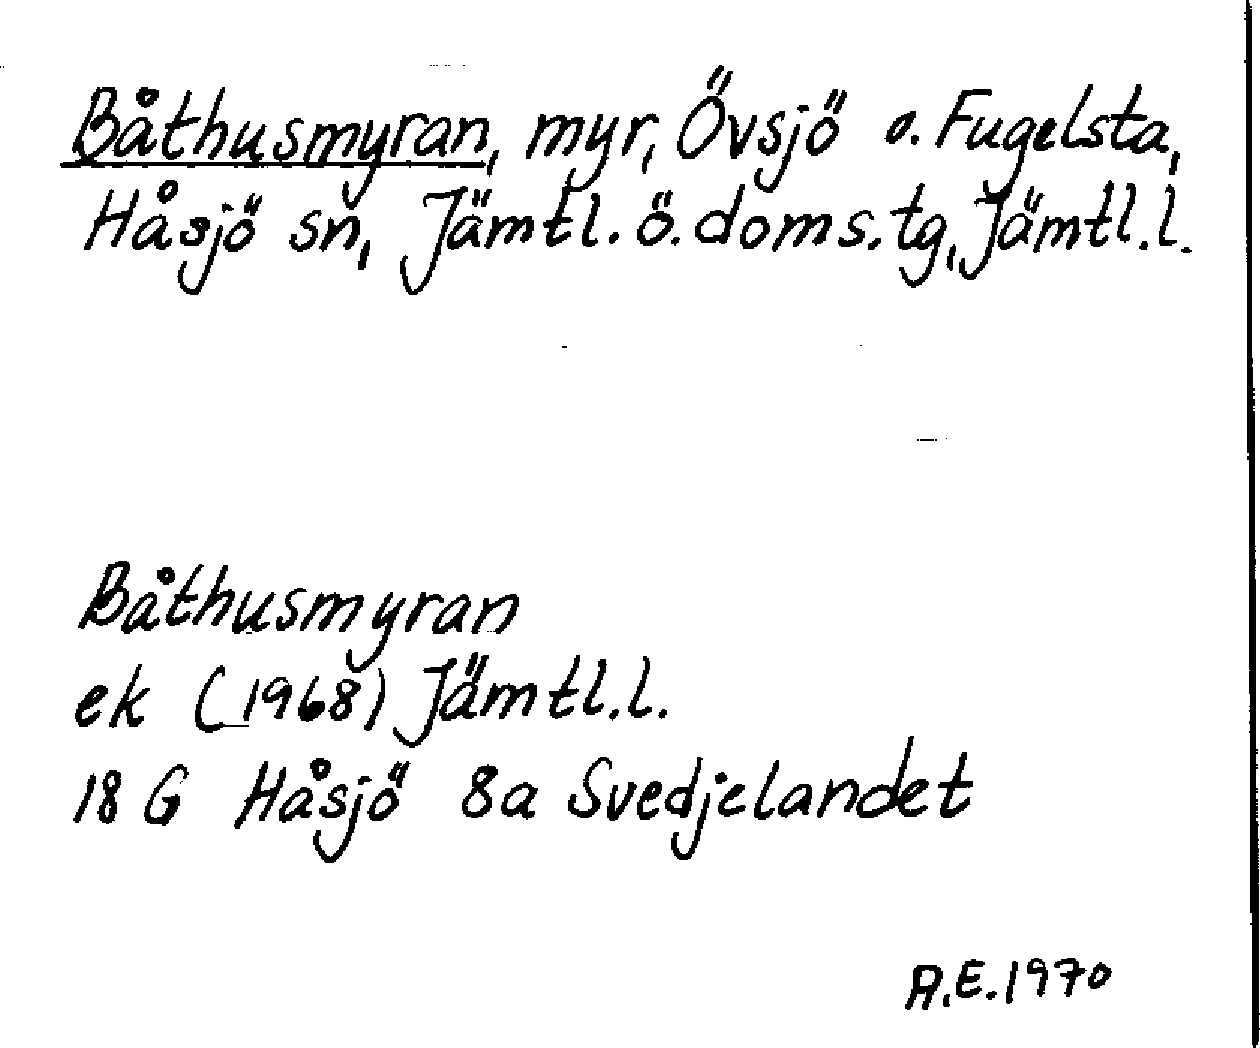 Båthusmyran, myr, Övsjö o. Fugelsta,
Håsjö sn, Jämtl. ö. doms. tg, Jämtl. l.
Båthusmyran
ek (1968) Jämtl. l.
18 G Håsjö 8a Svedjelandet
A.E. 1970